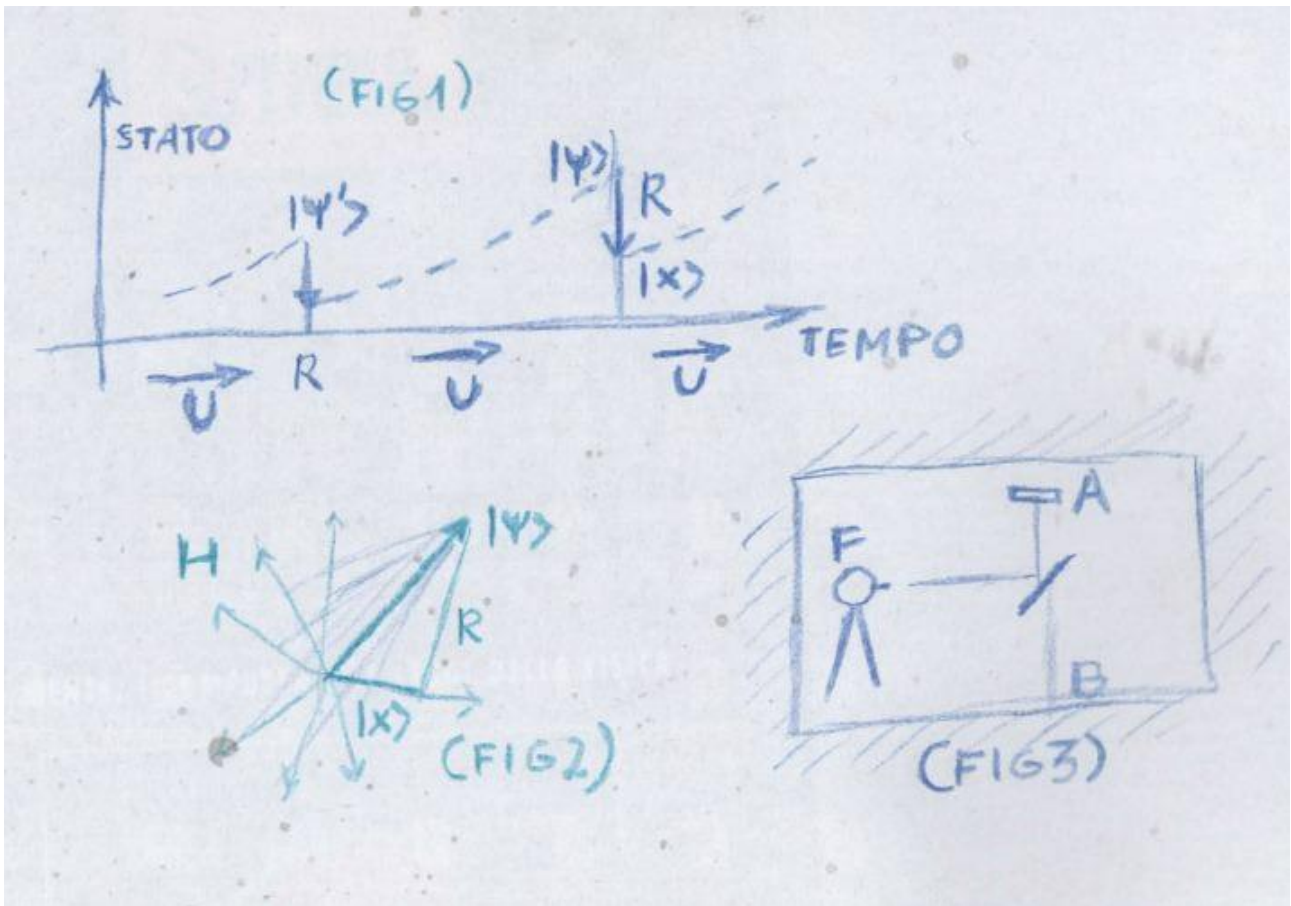 (FIG1)
STATO
|ψ'>
|ψ>
R
|x>
TEMPO
U
R
U
U
H
|ψ>
R
|x>
(FIG2)
A
F
B
(FIG3)